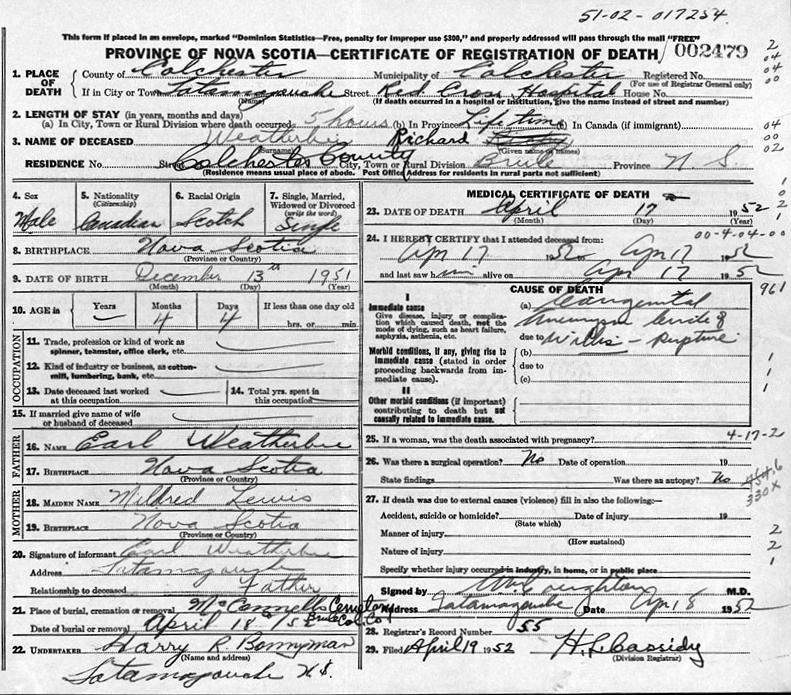 51-02-017254
This form if placed in an envelope, marked "Dominion Statistics—Free, penalty for improper use $300," and properly addressed will pass through the mail "FREE"
PROVINCE OF NOVA SCOTIA—CERTIFICATE OF REGISTRATION OF DEATH 002479
1. PLACE OF DEATH County of Colchester Municipality of Colchester Registered No.
(For use of Registrar General only)
If in City or Town Tatamagouche Street Red Cross Hospital House No.
(Name) (If death occurred in a hospital or institution, give the name instead of street and number)
2. LENGTH OF STAY (in years, months and days)
(a) In City, Town or Rural Division where death occurred 5 hours (b) In Province Life time (c) In Canada (if immigrant)
3. NAME OF DECEASED Weatherbie Richard
(Surname) (Given name or names)
RESIDENCE No. Street Colchester County City, Town or Rural Division Brule Province N S.
(Residence means usual place of abode. Post Office Address for residents in rural parts not sufficient)
4. Sex Male
5. Nationality (Citizenship) Canadian
6. Racial Origin Scotch
7. Single, Married, Widowed or Divorced (write the word) Single
8. BIRTHPLACE Nova Scotia
(Province or Country)
9. DATE OF BIRTH December 13th 1951
(Month) (Day) (Year)
10. AGE in Years Months Days If less than one day old
4 4 hrs. or min.
OCCUPATION
11. Trade, profession or kind of work as spinner, teamster, office clerk, etc.
12. Kind of industry or business, as cotton-mill, lumbering, bank, etc.
13. Date deceased last worked at this occupation
14. Total yrs. spent in this occupation
15. If married give name of wife or husband of deceased
FATHER
16. NAME Earl Weatherbie
17. BIRTHPLACE Nova Scotia
(Province or Country)
MOTHER
18. MAIDEN NAME Mildred Lewis
19. BIRTHPLACE Nova Scotia
(Province or Country)
20. Signature of informant Earl Weatherbie
Address Tatamagouche
Relationship to deceased Father
21. Place of burial, cremation or removal McConnells Cemetery Brule Col. Co.
Date of burial or removal April 18/52
22. UNDERTAKER Harry R Bonnyman
(Name and address)
Tatamagouche N.S.
MEDICAL CERTIFICATE OF DEATH
23. DATE OF DEATH April 17 1952
(Month) (Day) (Year)
24. I HEREBY CERTIFY that I attended deceased from: 00-4-04-00
Apr 17 1952 to Apr 17 1952
and last saw him alive on Apr 17 1952
CAUSE OF DEATH 961
I
Immediate cause
Give disease, injury or complication which caused death, not the mode of dying, such as heart failure, asphyxia, asthenia, etc.
(a) Congenital Aneurysm Circle of
due to Willis - Rupture
Morbid conditions, if any, giving rise to immediate cause (stated in order proceeding backwards from immediate cause).
(b)
due to
(c)
II
Other morbid conditions (if important) contributing to death but not causally related to immediate cause.
25. If a woman, was the death associated with pregnancy? 4-17-2
26. Was there a surgical operation? No Date of operation 19
State findings Was there an autopsy? No
330X
27. If death was due to external causes (violence) fill in also the following:—
Accident, suicide or homicide? Date of injury 19
(State which)
Manner of injury
(How sustained)
Nature of injury
Specify whether injury occurred in industry, in home, or in public place
Signed by M.D.
Address Tatamagouche Date Apr 18 1952
28. Registrar's Record Number 55
29. Filed April 19 1952 H. L. Cassidy
(Division Registrar)